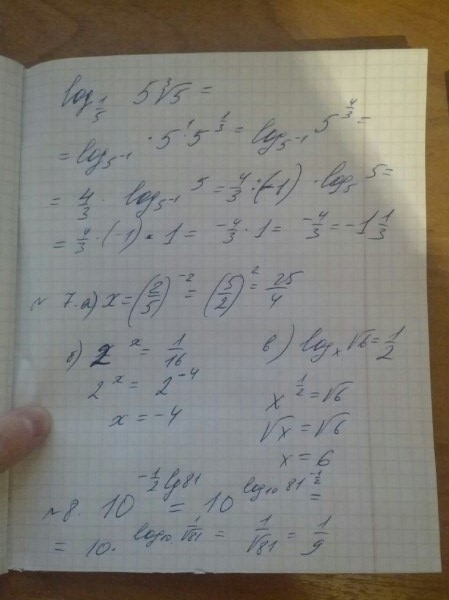 log_{1/5} 5∛5 =
= log_{5^{-1}} · 5^1 5^{1/3} = log_{5^{-1}} 5^{4/3} =
= 4/3 · log_{5^{-1}} 5 = 4/3 · (-1) · log_5 5 =
= 4/3 · (-1) · 1 = -4/3 · 1 = -4/3 = -1 1/3
№ 7. а) x = (2/5)^{-2} = (5/2)^2 = 25/4
б) 2^x = 1/16
2^x = 2^{-4}
x = -4
в) log_x √6 = 1/2
x^{1/2} = √6
√x = √6
x = 6
№ 8. 10^{-1/2 lg 81} = 10^{log_{10} 81^{-1/2}} =
= 10 · log_{10} 1/√81 = 1/√81 = 1/9